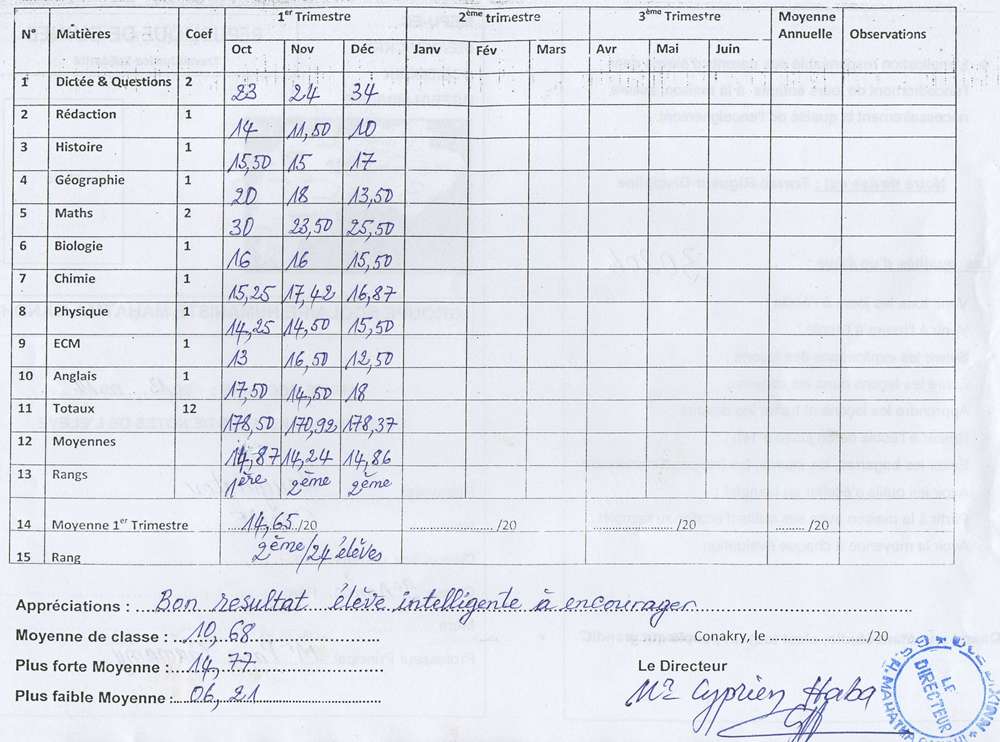 1er Trimestre 2ème trimestre 3ème Trimestre Moyenne Annuelle
N° Matières Coef Oct Nov Déc Janv Fév Mars Avr Mai Juin Observations
1 Dictée & Questions 2 23 24 34
2 Rédaction 1 14 11,50 10
3 Histoire 1 15,50 15 17
4 Géographie 1 20 18 13,50
5 Maths 2 30 23,50 25,50
6 Biologie 1 16 16 15,50
7 Chimie 1 15,25 17,42 16,87
8 Physique 1 14,25 14,50 15,50
9 ECM 1 13 16,50 12,50
10 Anglais 1 17,50 14,50 18
11 Totaux 12 178,50 170,92 178,37
12 Moyennes 14,87 14,24 14,86
13 Rangs 1ère 2ème 2ème
14 Moyenne 1er Trimestre 14,65 /20 /20 /20
15 Rang 2ème/24 élèves
Appréciations : Bon resultat élève intelligente à encourager
Moyenne de classe : 10,68
Conakry, le /20
Plus forte Moyenne : 14,77
Le Directeur
Plus faible Moyenne : 06,21
Mr Cyprien Haba
LE
DIRECTEUR